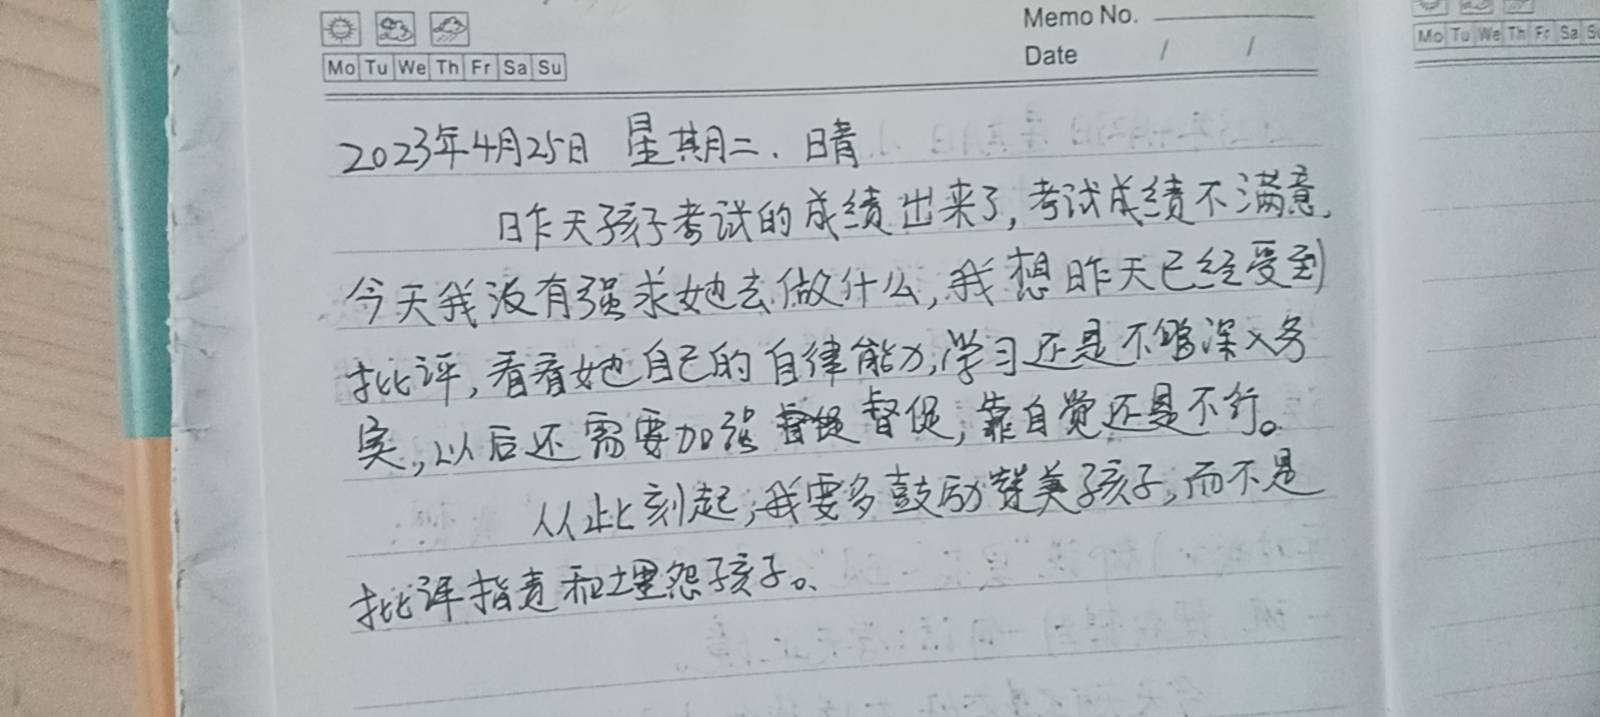 Memo No.
Mo Tu We Th Fr Sa Su
Date / /
Mo Tu We Th Fr Sa Su
2023年4月25日 星期二. 晴
昨天孩子考试的成绩出来了,考试成绩不满意,
今天我没有强求她去做什么,我想昨天已经受到
批评,看看她自己的自律能力,学习还是不够深入务
实,以后还需要加强督促,靠自觉还是不行。
从此刻起,我要多鼓励赞美孩子,而不是
批评指责和埋怨孩子。